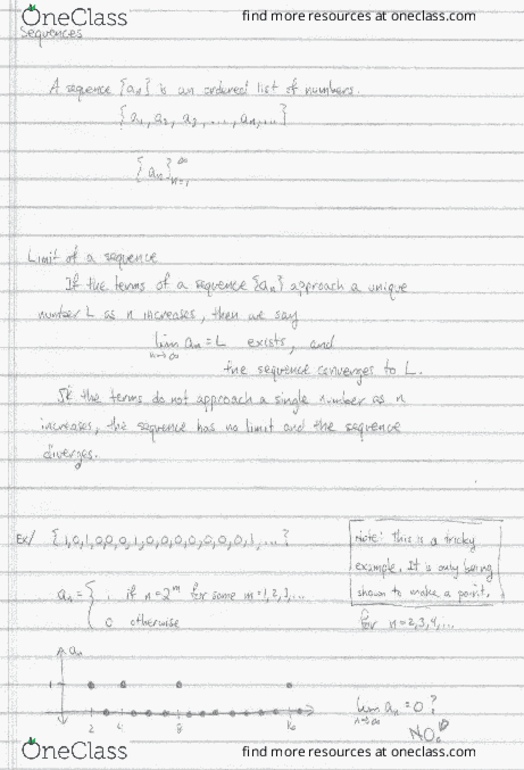 OneClass
find more resources at oneclass.com
Sequences
A sequence {aₙ} is an ordered list of numbers.
{a₁, a₂, a₃, ..., aₙ, ...}
{aₙ}ₙ₌₁^∞
Limit of a sequence
If the terms of a sequence {aₙ} approach a unique
number L as n increases, then we say
lim n→∞ aₙ = L exists, and
the sequence converges to L.
If the terms do not approach a single number as n
increases, the sequence has no limit and the sequence
diverges.
Ex/ {1,0,1,0,0,0,1,0,0,0,0,0,0,0,1,...}
Note: This is a tricky
example. It is only being
shown to make a point.
aₙ = { 1 if n=2^m for some m=1,2,3,...
0 otherwise
for n=2,3,4,...
aₙ
1
2 4 8 16
lim n→∞ aₙ = 0?
NO
OneClass
find more resources at oneclass.com